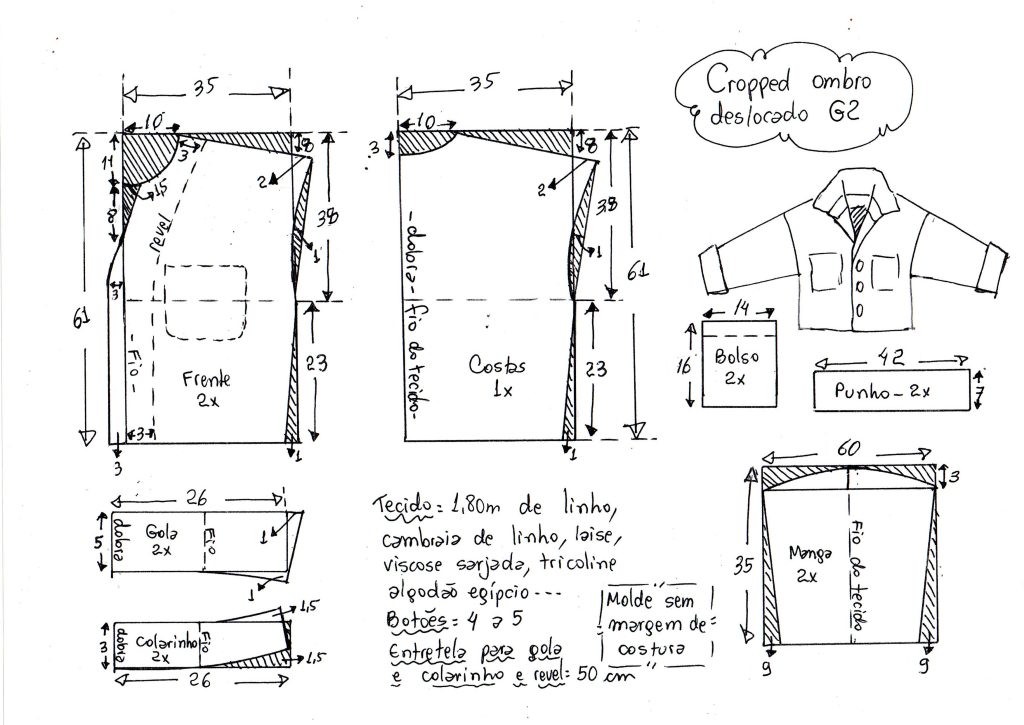 Cropped ombro
deslocado G2
35
10
11
3
8
1,5
2
8
38
1
revel
3
61
23
Fio
Frente
2x
3
3
1
35
10
3
8
2
38
1
61
-dobra- fio do tecido-
23
Costas
1x
1
14
16
Bolso
2x
42
Punho - 2x
7
60
3
35
Manga
2x
Fio do tecido
9
9
26
5
dobra
Gola
2x
Fio
1
1
3
dobra
Colarinho
2x
Fio
1,5
1,5
26
Tecido = 1,80m de linho,
cambraia de linho, laise,
viscose sarjada, tricoline
algodão egípcio ---
Botões = 4 a 5
Entretela para gola
e colarinho e revel = 50 cm
Molde sem
margem de
costura